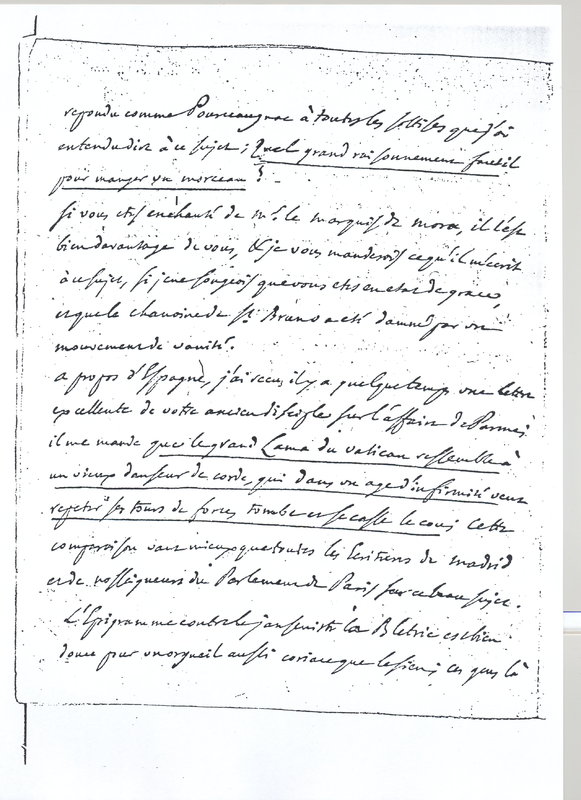 repondu comme Pourceaugnac à toutes les sottises que j'ai
entendu dire à ce sujet; Quel grand raisonnement faut il
pour manger un morceau? -
Si vous etes enchanté de mr. le marquis de mora, il l'est
bien davantage de vous, & je vous manderois ce qu'il m'ecrit
à ce sujet, si je ne songeois que vous etes en etat de grace,
et que le chanoine de St. Bruno a eté damné par un
mouvement de vanité.
a propos d'Espagne, j'ai reçu il y a quelque temps une lettre
excellente de votre ancien disciple sur l'affaire de Parme;
il me mande que le grand Lama du vatican ressemble à
un vieux danseur de corde, qui dans un age d'infirmité veut
repeter ses tours de force, tombe et se casse le cou; cette
comparaison vaut mieux que toutes les Ecritures de madrid
et de nosseigneurs du Parlement de Paris sur ce beau sujet.
L'Epigramme contre le janseniste la Bletrie est bien
douce pour un orgueil aussi coriace que le sien; ces gens là